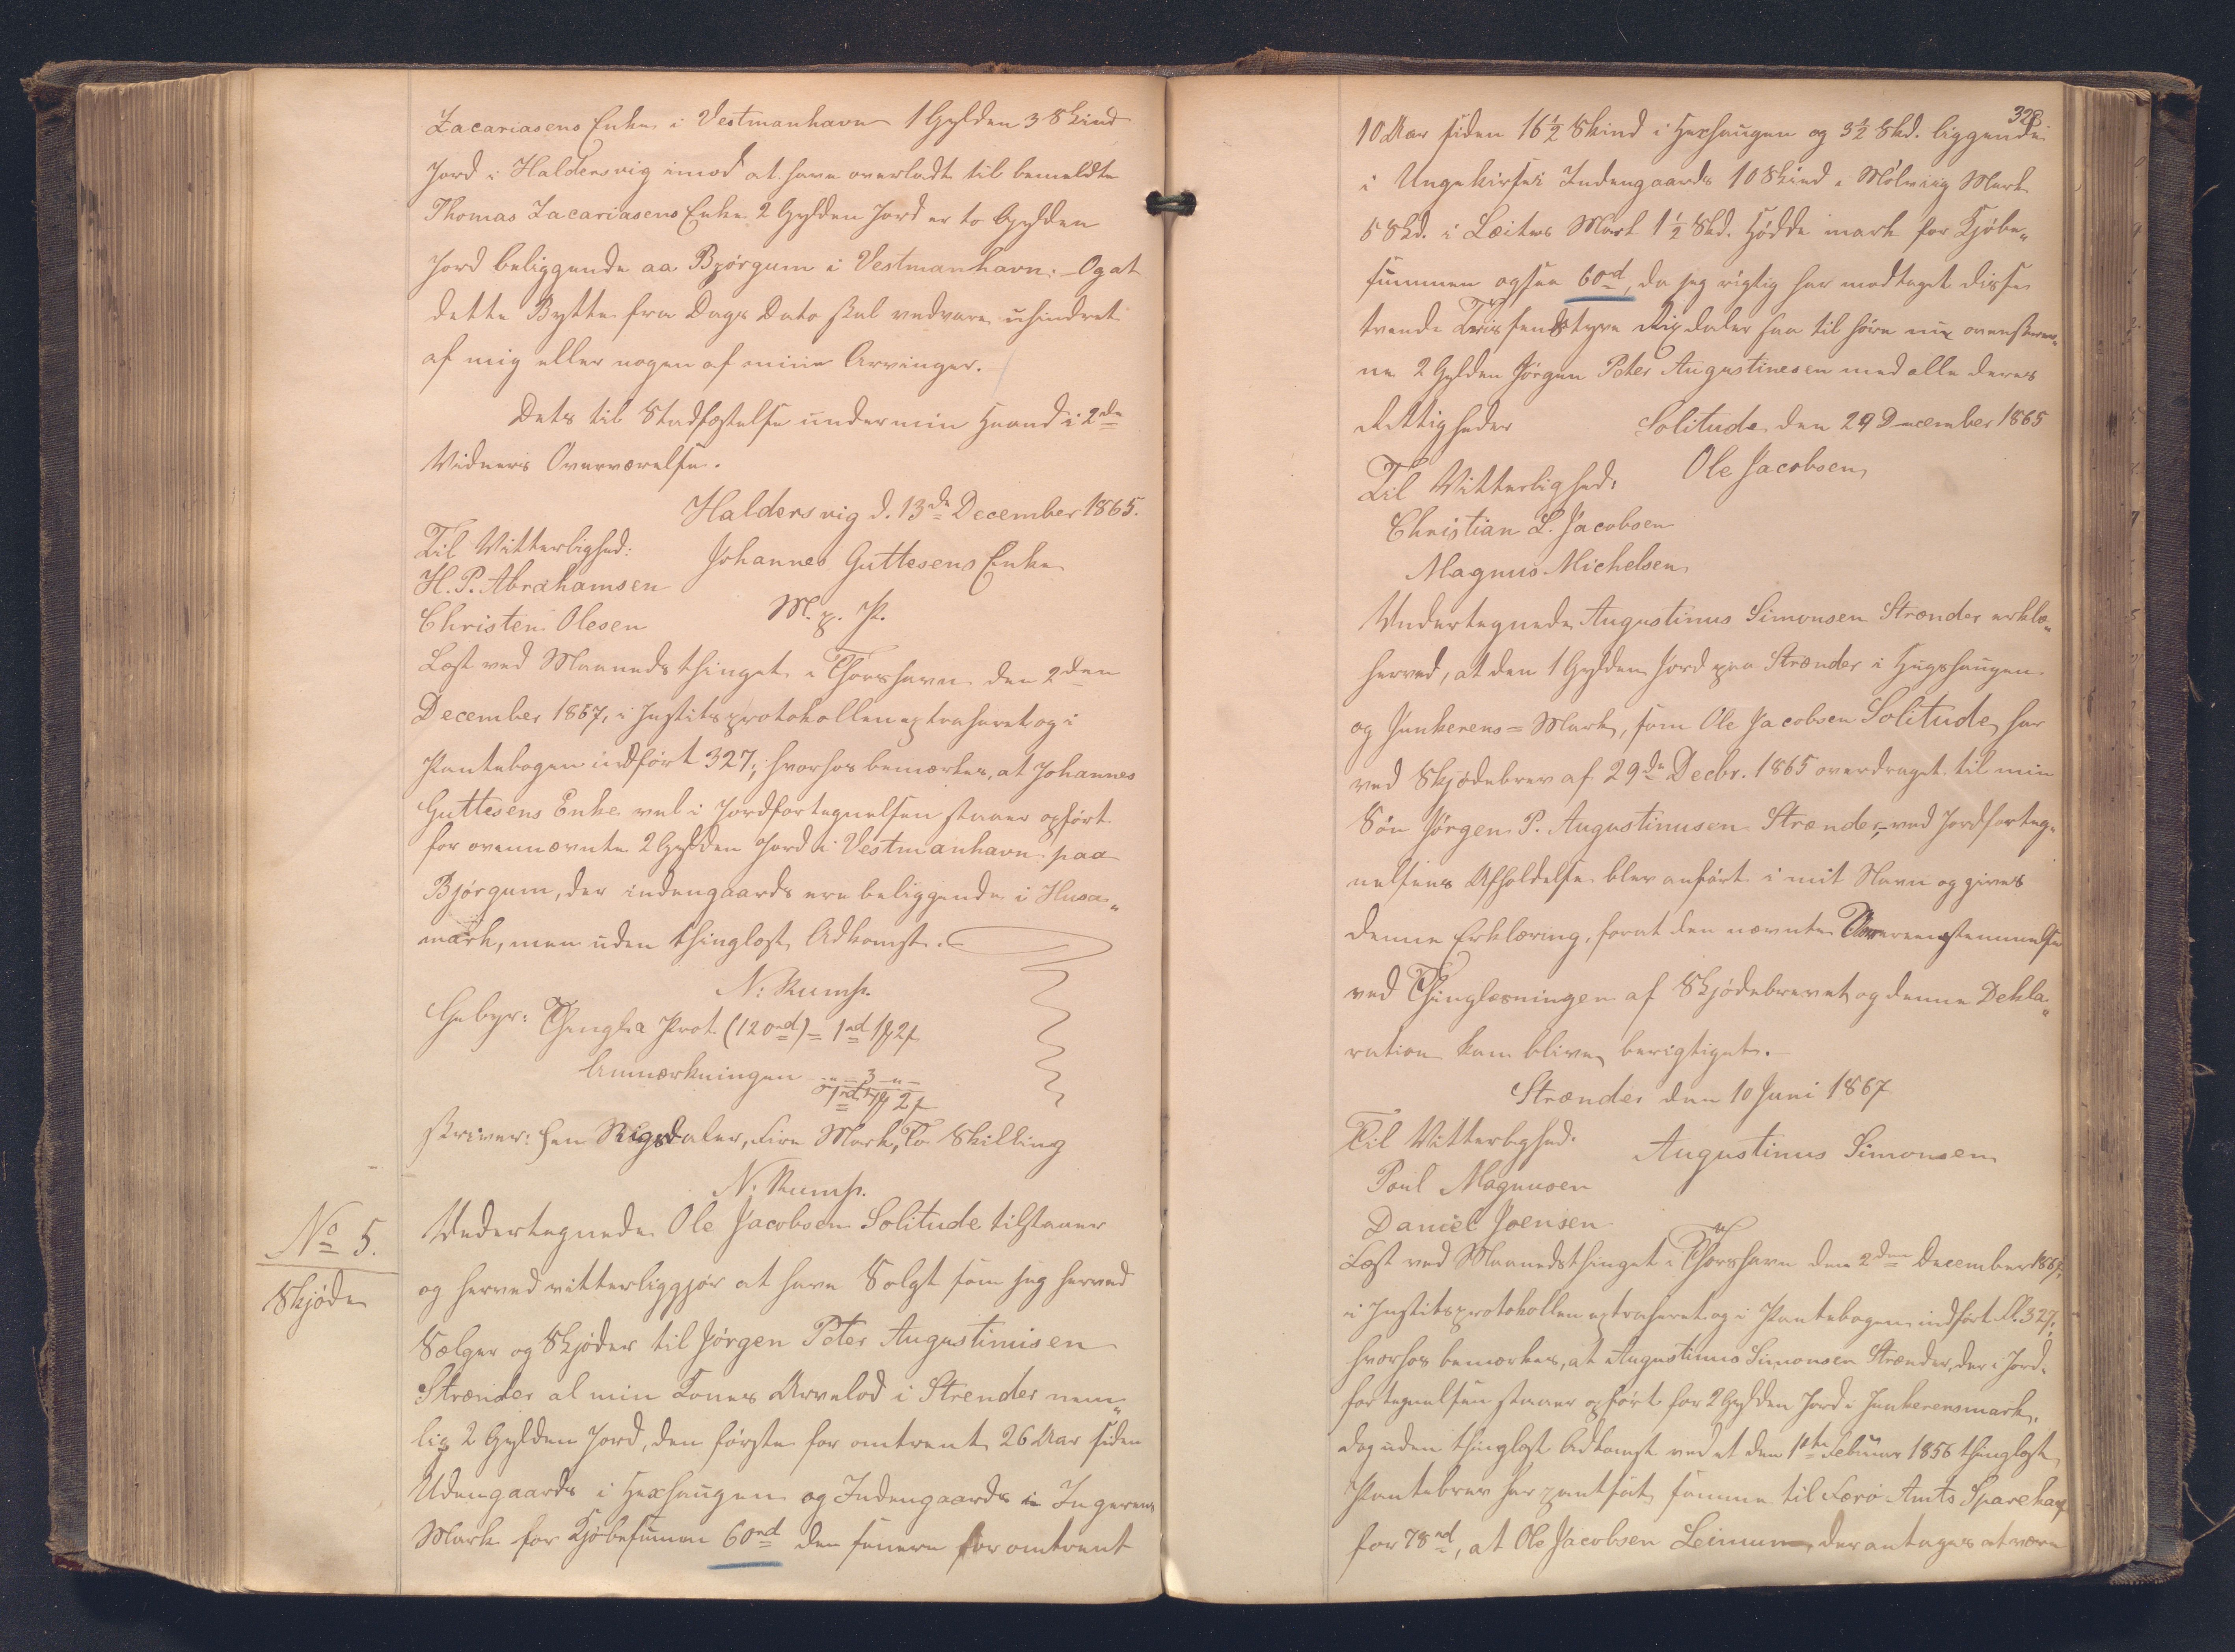 Zacariasens Enke i Vestmanhavn 1 Gylden 3 Skind
Jord i Haldersvig imod at have overladt til bemeldte
Thomas Zacariasens Enke 2 Gylden Jord er to Gylden
Jord beliggende aa Bjørgum i Vestmanhavn. – Og at
dette Bytte fra Dags Dato skal vedvare uhindret
af mig eller nogen af mine Arvinger.
Dets til Stadfæstelse under min Haand i 2de
Vidners Overværelse.
Haldersvig d. 13de December 1865.
Til Vitterlighed:
Johannes Guttesens Enke
H. P. Abrahamsen
M. p. P.
Christen Olesen
Læst ved Maanedsthinget i Thorshavn den 2den
December 1867, i Justitsprotokollen extraheret og i
Pantebogen indført 327; hvorhos bemærkes, at Johannes
Guttesens Enke vel i Jordfortegnelsen staaer opført
for ovennævnte 2 Gylden Jord i Vestmanhavn paa
Bjørgum, der indengaards ere beliggende i Husa„
mark, men uden thinglæst Adkomst.
N: Rump.
Gebyr: Thingl: a Prot. (120rd) = 1rd 1 2
Anmærkningen -„- 3 -„-
1rd 4 2
skriver: Een Rigsdaler, Fire Mark, To Skilling
N. Rump.
No 5.
Skjøde
Undertegnede Ole Jacobsen Solitude tilstaaer
og herved vitterliggjør at have Solgt som jeg herved
Sælger og Skjøder til Jørgen Peter Augustinisen
Strænder al min Kones Arvelod i Strender nem„
lig 2 Gylden Jord, den første for omtrent 26 Aar siden
Udengaards i Hexhaugen og Indengaards i Ingerens
Mark for Kjøbesumen 60rd den senere for omtrent
328
10 Aar siden 16½ Skind i Hexhaugen og 3½ Skd. liggende
i Ungekirsei Indengaards 10 Skind i Mølving Mark
5 Skd. i Leitus Mark 1½ Skd. Hødde mark for Kjøbe„
summen ogsaa 60rd, da jeg rigtig har modtaget disse
tvende Tres Rixdaler saa til høre nu ovenskrev„
ne 2 Gylden Jørgen Peter Augustinesen med alle deres
Rettigheder
Solitude den 29 December 1865
Til Vitterlighed:
Ole Jacobsen
Christian L. Jacobsen
Magnus Michelsen
Undertegnede Augustinus Simonsen Strænder erklæ„
herved, at den 1 Gylden Jord paa Strænder i Hugshaugen
og Junkerens=Mark, som Ole Jacobsen Solitude har
ved Skjødebrev af 29de Decbr. 1865 overdraget til min
Søn Jørgen P. Augustinusen Strænder, ved Jordforteg„
nelsens Afholdelse blev anført i mit Navn og gives
denne Erklæring, forat den nævnte Overensstemmelse
ved Thinglæsningen af Skjødebrevet og denne Dekla„
ration kan blive berigtiget.
Strænder den 10 Juni 1867
Til Vitterlighed:
Augustinus Simonsen
Poul Magnusen
Daniel Joensen
Læst ved Maanedsthinget i Thorshavn den 2den December 1867,
i Justitsprotokollen extraheret og i Pantebogen indført Fl. 327;
hvorhos bemærkes, at Augustinus Simonsen Strænder, der i Jord„
fortegnelsen staaer opført for 2 Gylden Jord i Junkerensmark,
dog uden thinglæst Adkomst ved et den 1ste Februar 1856 thinglæst
Pantebrev har pantsat samme til Færø Amts Sparekasse
for 78rd, at Ole Jacobsen Leinum, der antages at være